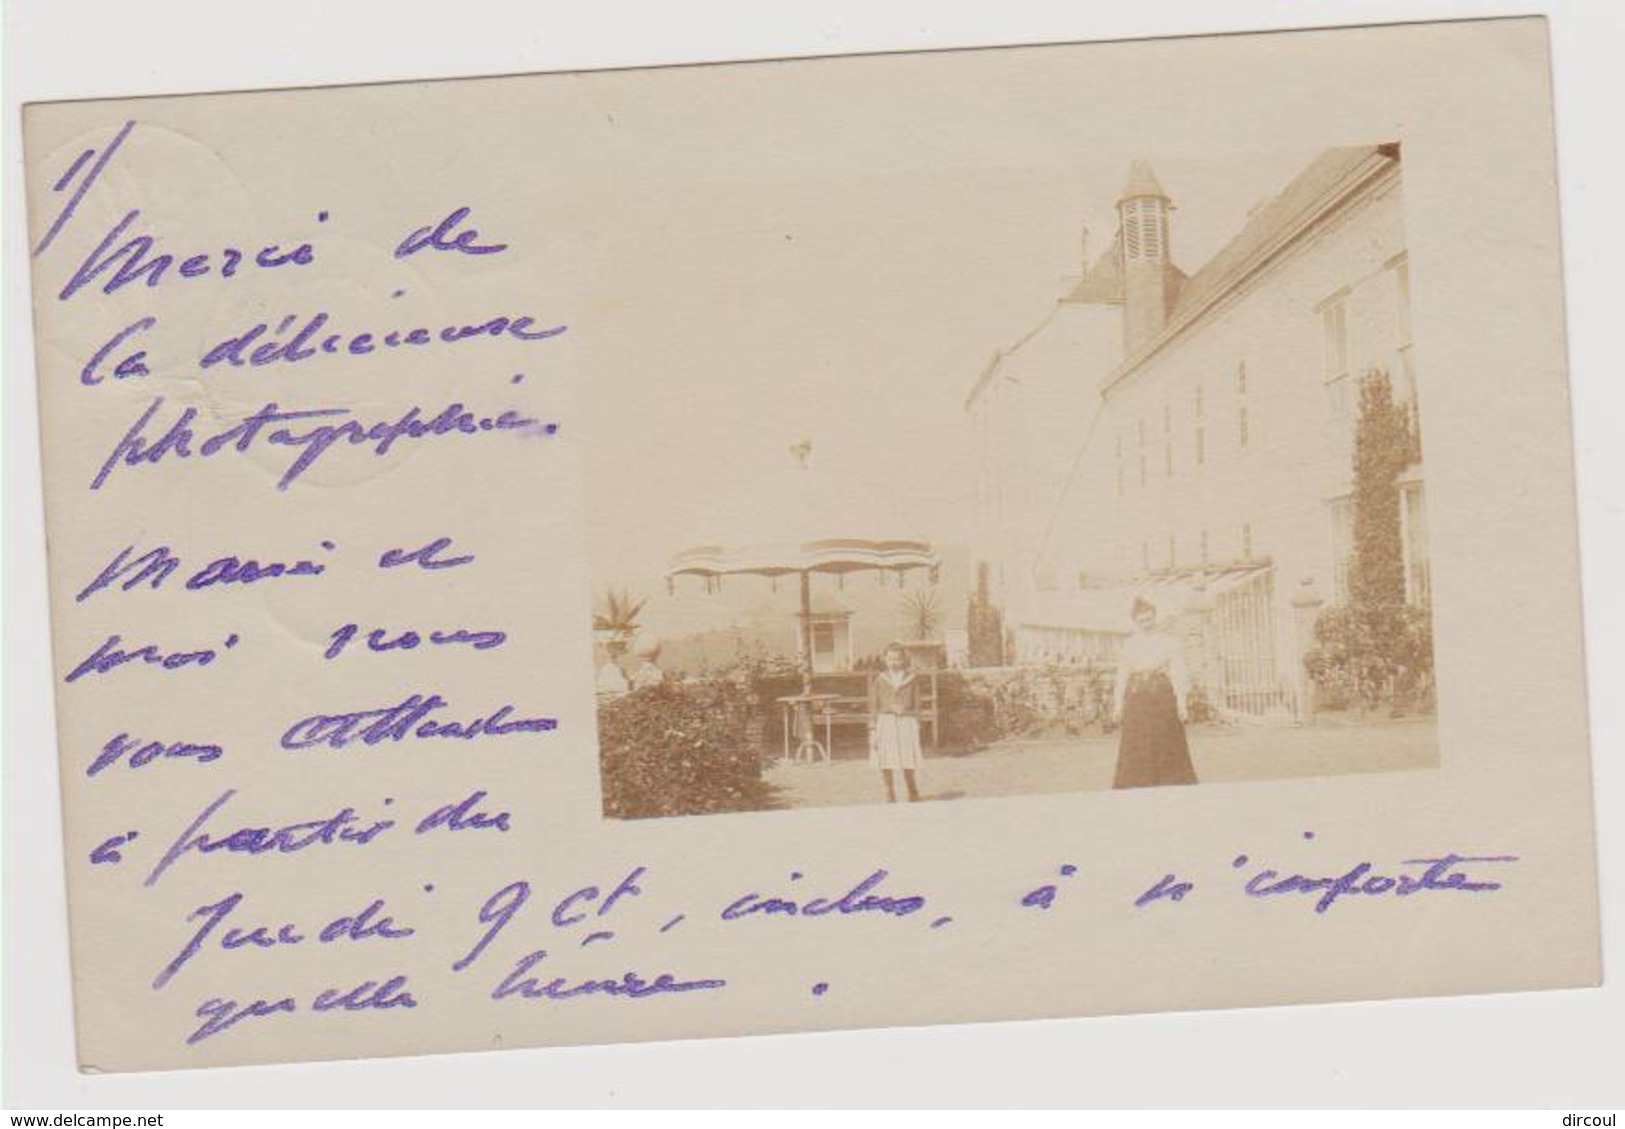 1/
Merci de
la délicieuse
photographie.
Marie et
moi nous
vous attendons
à partir du
Jeudi 9 ct, inclus, à n'importe
quelle heure.
delcampe.net
dircoul